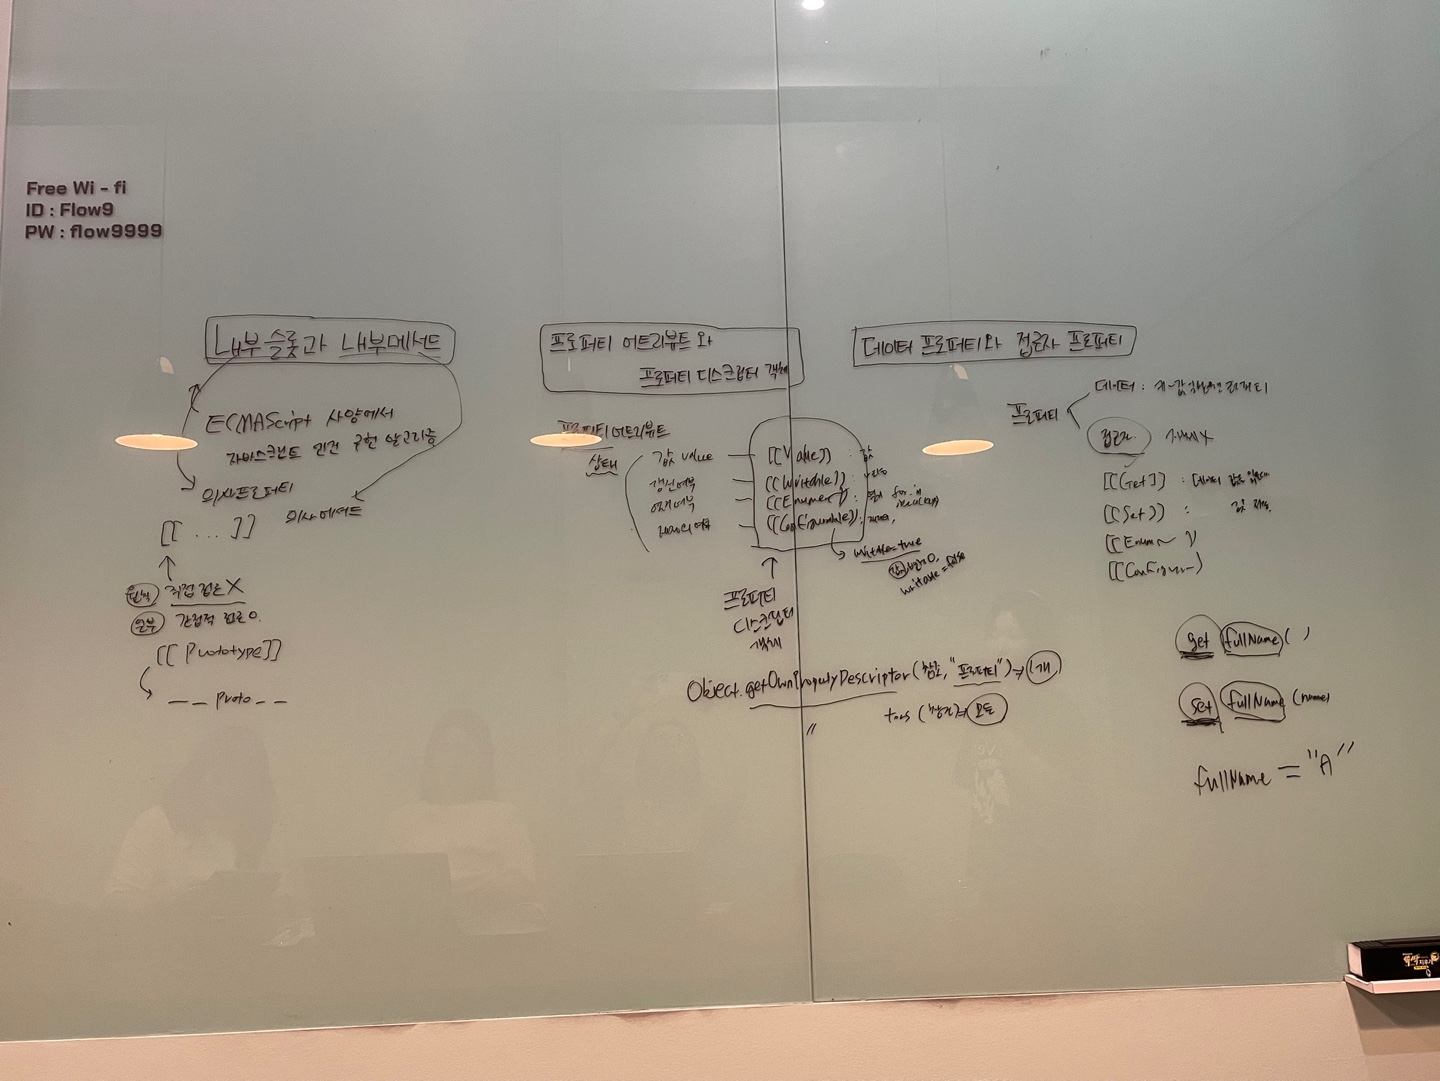 Free Wi - fi
ID : Flow9
PW : flow9999
내부 슬롯과 내부메서드
ECMAScript 사양에서
자바스크립트 엔진 구현 알고리즘
의사프로퍼티
의사메서드
[[ ... ]]
원칙 직접 접근 X
일부 간접적 접근 O.
[[Prototype]]
__proto__
프로퍼티 어트리뷰트와
프로퍼티 디스크립터 객체
프로퍼티 어트리뷰트
상태
값 value [[Value]] : 값
갱신여부 [[Writable]] :
열거여부 [[Enumer 열거 for in
재정의 여부 [[Configurable]] :
writable = true
값 변경 O,
writable = false
프로퍼티
디스크립터
객체
Object.getOwnPropertyDescriptor(참조, "프로퍼티") ⇒ 1개
tors (참조) ⇒ 모든
〃
데이터 프로퍼티와 접근자 프로퍼티
프로퍼티
데이터 : 키-값 프로퍼티
접근자
[[Get]] : 데이터 값을
[[Set]] : 값 저장
[[Enum~]]
[[Configur~]]
get fullName()
set fullName(name)
fullName = "A"